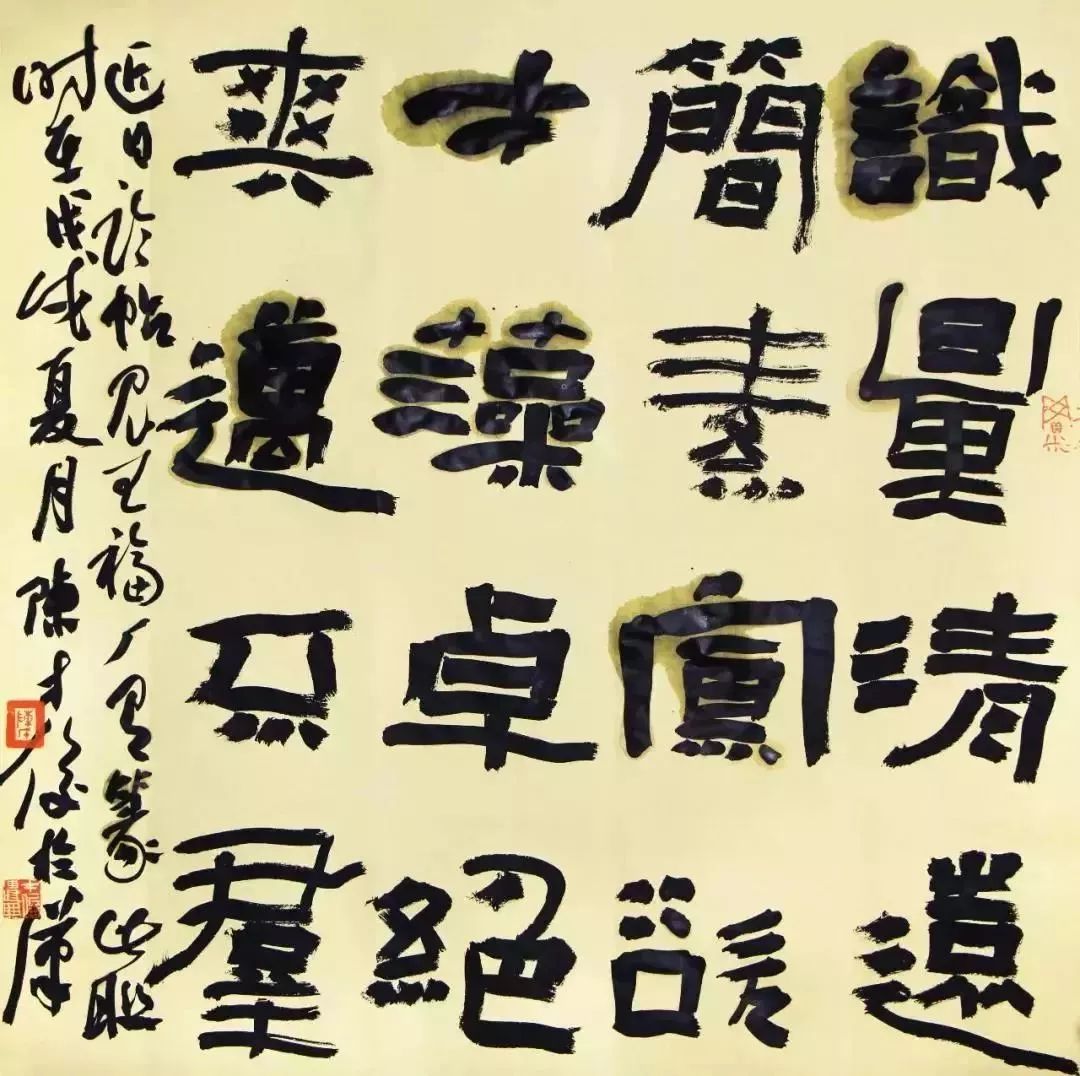 識量清遠
簡素寡欲
才藻卓絕
爽邁不羣
近日臨帖見王福厂有篆此聯
時在戊戌夏月陳才俊於漢